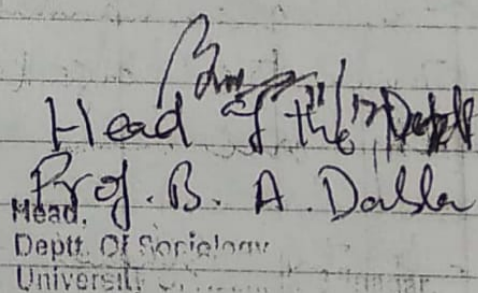 Head of the Deptt
Prof. B. A. Dabla
Head,
Deptt. Of Sociology
University